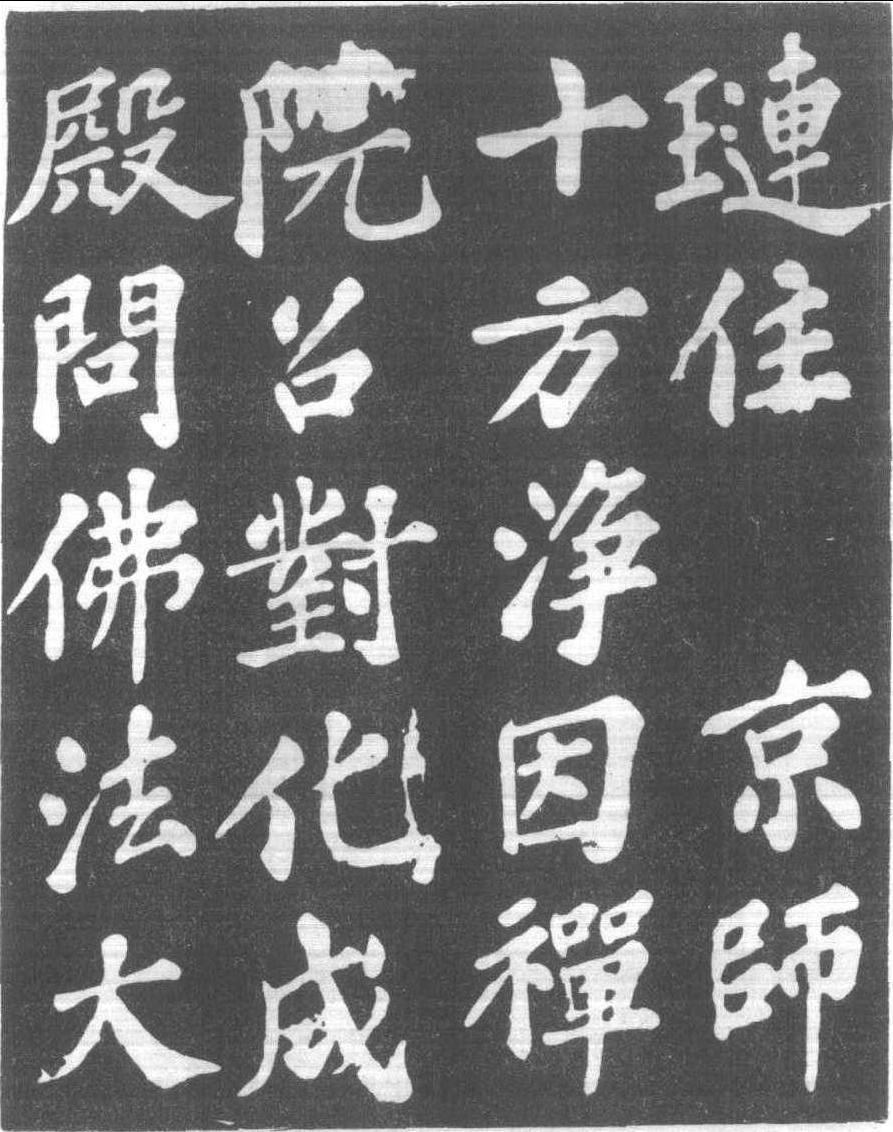 璉住 京師
十方淨因禪
院召對化成
殿問佛法大